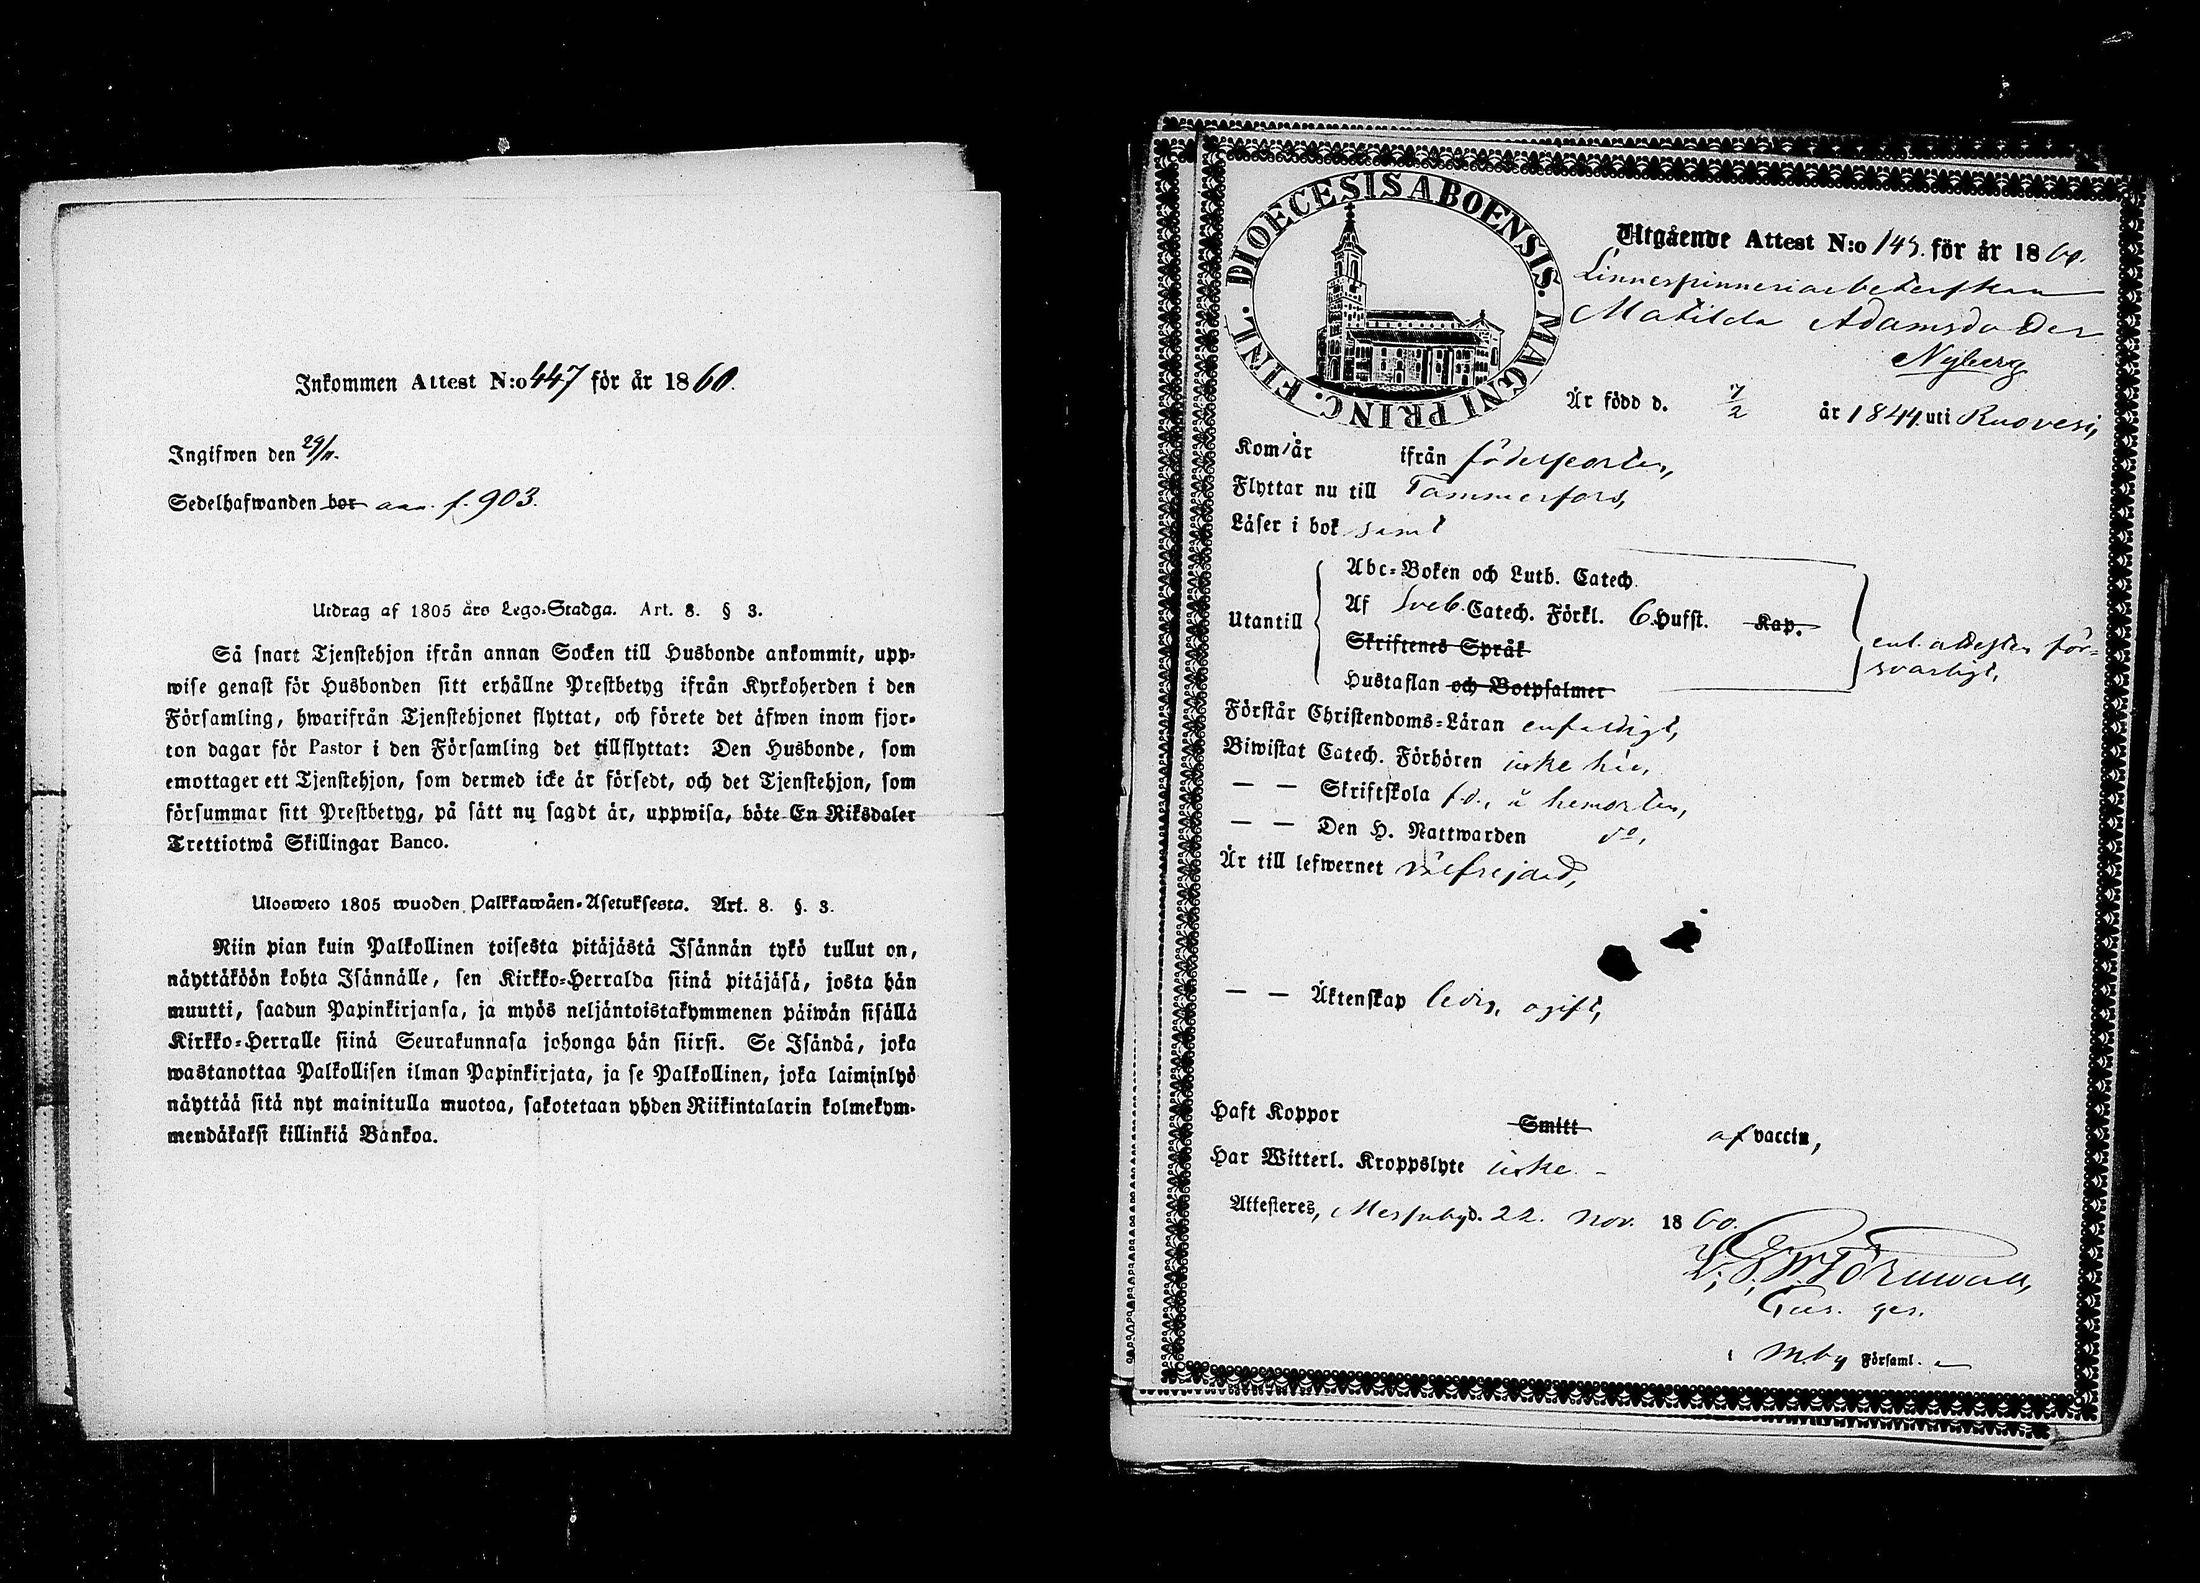 Inkommen Attest N:o 447 för år 1860.
Ingifwen den 29/11.
Sedelhafwanden bor ann. f. 903.
Utdrag af 1805 års Lego-Stadga. Art. 8. § 3.
Så snart Tjenstehjon ifrån annan Socken till Husbonde ankommit, upp-
wise genast för Husbonden sitt erhållne Prestbetyg ifrån Kyrkoherden i den
Församling, hwarifrån Tjenstehjonet flyttat, och förete det äfwen inom fjor-
ton dagar för Pastor i den Församling det tillflyttat: Den Husbonde, som
emottager ett Tjenstehjon, som dermed icke är försedt, och det Tjenstehjon, som
försummar sitt Prestbetyg, på sätt nu sagdt är, uppwisa, böte En Riksdaler
Trettiotwå Skillingar Banco.
Ulosweto 1805 wuoden Palkkawäen-Asetuksesta. Art. 8. §. 3.
Niin pian kuin Palkollinen toisesta pitäjästä Isännän tykö tullut on,
näyttäköön kohta Isännälle, sen Kirkko-Herralda siinä pitäjäsä, josta hän
muutti, saadun Papinkirjansa, ja myös neljäntoistakymmenen päiwän sisällä
Kirkko-Herralle siinä Seurakunnasa johonga hän siirsi. Se Isändä, joka
wastanottaa Palkollisen ilman Papinkirjata, ja se Palkollinen, joka laiminlyö
näyttää sitä nyt mainitulla muotoa, sakotetaan yhden Riikintalarin kolmekym-
mendäkaksi killinkiä Bankoa.
DIOECESIS ABOENSIS. MAGNI PRINC. FINL.
Utgående Attest N:o 143. för år 1860.
Linnespinneriarbeterskan
Matilda Adamsdotter
Nyberg
Är född d. 7/2 år 1844 uti Ruovesi,
Kom år ifrån födelseorten,
Flyttar nu till Tammerfors,
Läser i bok samt
Utantill
Abc-Boken och Luth. Catech.
Af Sveb. Catech. Förkl. 6. Hufst. Kap.
Skriftenes Språk
Hustaflan och Botpsalmer
enl. attesten för-
svarligt,
Förstår Christendoms-Läran enfaldigt,
Biwistat Catech. Förhören icke här,
— — Skriftskola i hemorten,
— — Den H. Nattwarden do,
Är till lefwernet välfrejdad,
— — Äktenskap ledig, ogift,
Haft Koppor Smitt af vaccin,
Har Witterl. Kroppslyte icke. -
Attesteres, Messuby d. 22. nov. 1860.
Törnwall,
i M.by Församl.